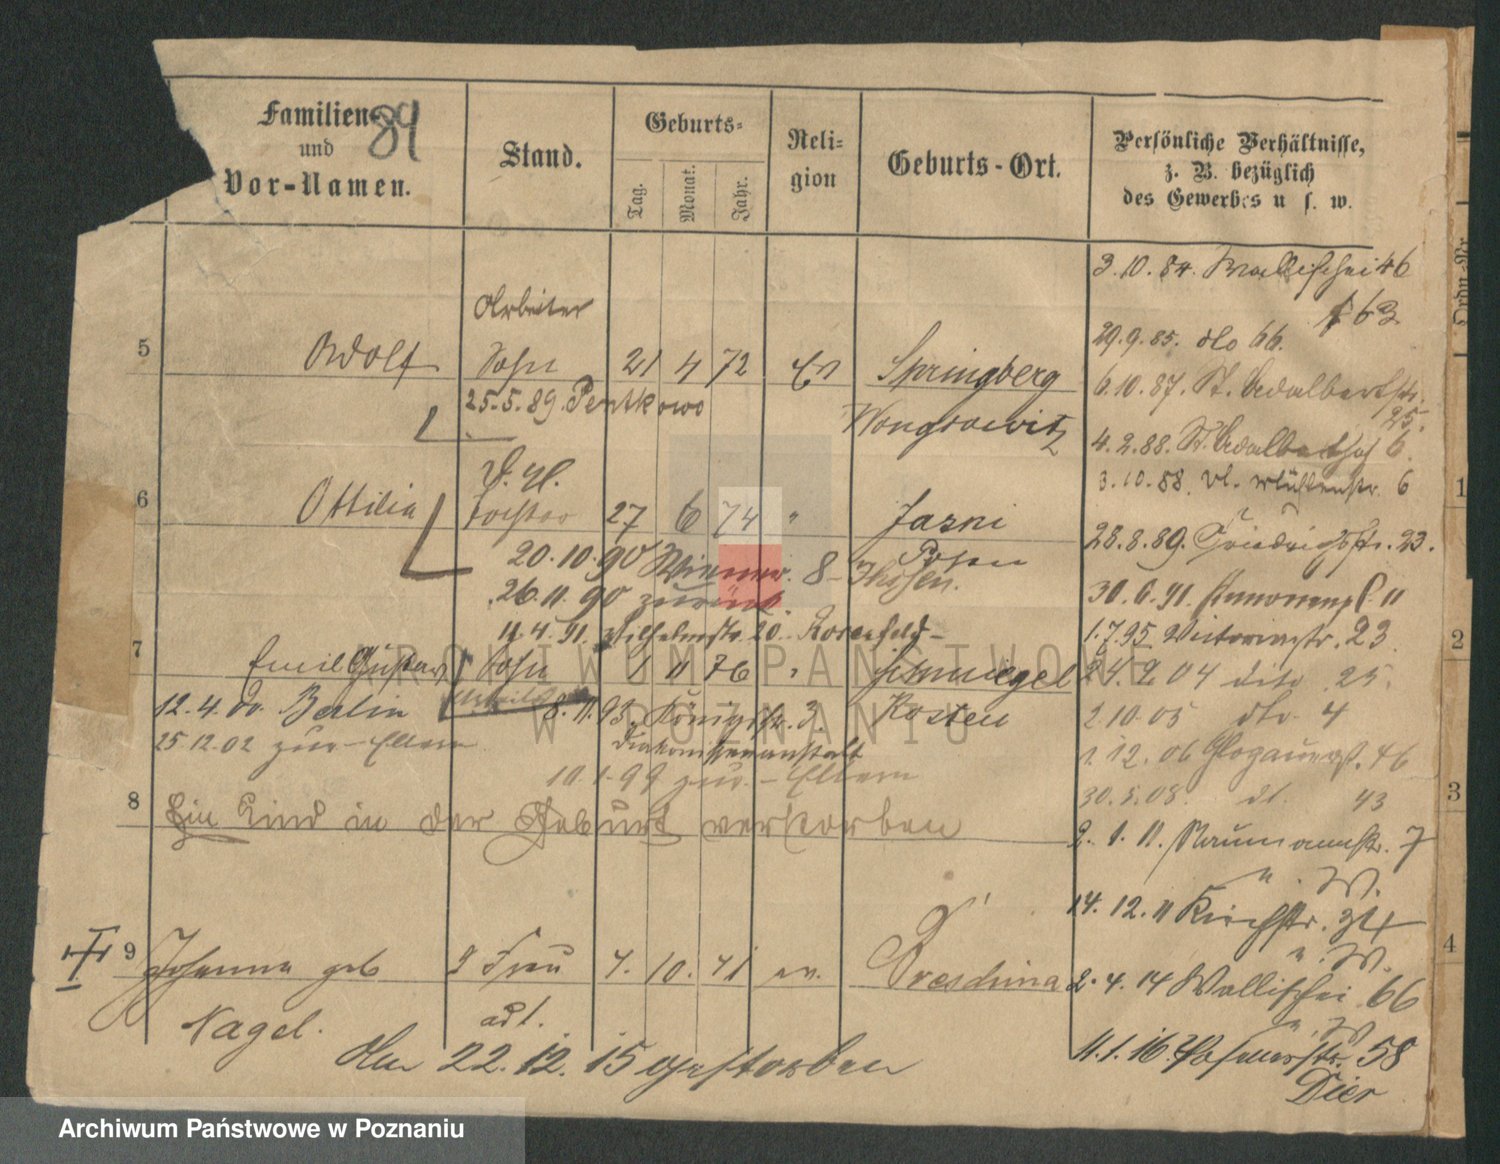 Familien-
und
Vor-Namen.
89
Stand.
Geburts-
Tag.
Monat.
Jahr.
Reli-
gion
Geburts-Ort.
Persönliche Verhältnisse,
z. B. bezüglich
des Gewerbes u. s. w.
5
Adolf
Arbeiter
Sohn
21 4 72
Ev
Springberg
Wongrowitz
25.5.89. Pentkowo
6
Ottilia
Tochter
27 6 74 "
Jasni
Posen
20.10.90 8-
26.11.90 zurück.
11.4.91. Wilhelmstr. 20. Rosenfeld-
7
Emil Gustav
Sohn
1 11 76 "
Schmiegel
Kosten
12.4. Berlin
8.11.93. Königstr. 3.
Diakonissenanstalt
25.12.02 zur - Eltern
10.1.99 zur. - Eltern
8
Ein Kind in der Geburt verstorben
9
Johanna geb
Nagel.
2 Frau
7. 10. 71 ev.
Am 22.12.15 gestorben
3.10.84. Wallischei 46
63
29.9.85. dto 66.
6.10.87. St. Adalbertstr.
25.
4.2.88. St. Adalberthof 6.
3.10.88. Mühlenstr. 6
28.8.89. Friedrichstr. 23.
30.6.91. 11
1.7.95 Victoriastr. 23
24.9.04 dito 25.
2.10.05 dto. 4
1.12.06 Glogauerst. 46
30.5.08. 43
2.1.11. Naumannstr. 7
u. W.
14.12.11 Kirchstr. 34
u. W.
2.4.14 Wallischei 66
u. W.
11.1.16. Posenerstr. 58
Dier
Ordn.-Nr.
1
2
3
4
ARCHIWUM PAŃSTWOWE
W POZNANIU
Archiwum Państwowe w Poznaniu